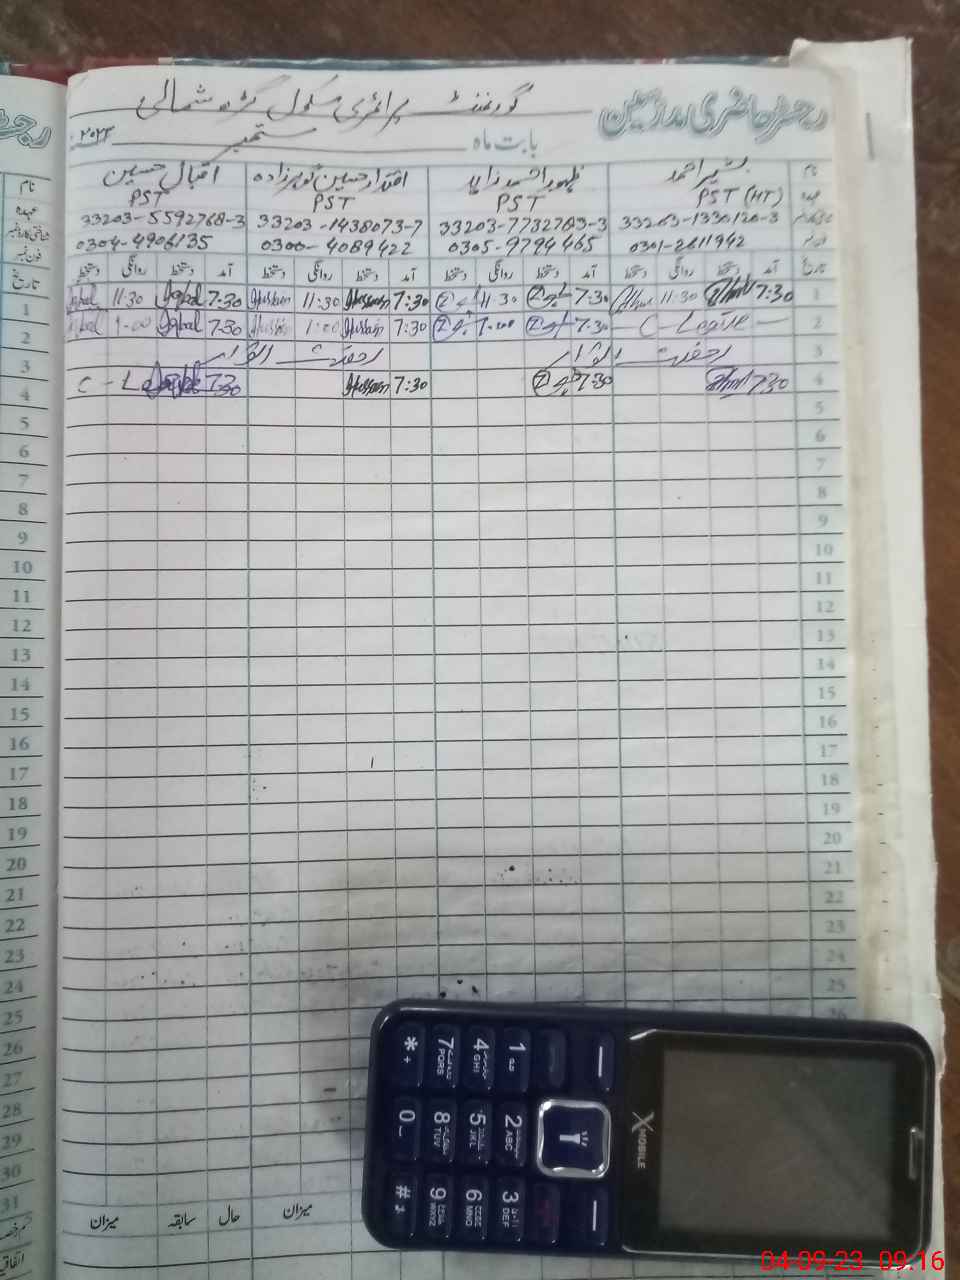 رجسٹر حاضری مدرسین گورنمنٹ پرائمری سکول شمالی
بابت ماہ ستمبر ۲۰۲۳
نام بشیر احمد ظہور احمد زاہد اقتدار حسین گوہر زادہ اقبال حسین نام
عہدہ PST (HT) PST PST PST عہدہ
33203-7732783-3 33203-1438073-7 33203-5592768-3 شناختی کارڈ نمبر
فون نمبر 0301-2611942 0305-9794465 0300-4089422 0304-4906135 فون نمبر
تاریخ آمد دستخط روانگی دستخط آمد دستخط روانگی دستخط آمد دستخط روانگی دستخط آمد دستخط روانگی دستخط تاریخ
1 7:30 11:30 7:30 11:30 Hussain 7:30 11:30 Hussain 7:30 Iqbal 11:30 Iqbal 1
2 C-Leave 7:30 1:00 7:30 Hussain 1:00 Hussain 7:30 Iqbal 1:00 Iqbal 2
3 رخصت اتوار رخصت اتوار 3
4 7:30 7:30 7:30 Hussain 7:30 C-L 4
5 5
6 6
7 7
8 8
9 9
10 10
11 11
12 12
13 13
14 14
15 15
16 16
17 17
18 18
19 19
20 20
21 21
22 22
23 23
24 24
25 25
26 26
27
28
29
30
31
میزان حال سابقہ میزان
اتفاقیہ
XMOBILE
1 2 ABC 3 DEF
4 GHI 5 JKL 6 MNO
7 PQRS 8 TUV 9 WXYZ
* + 0 #
04-09-23 09:16